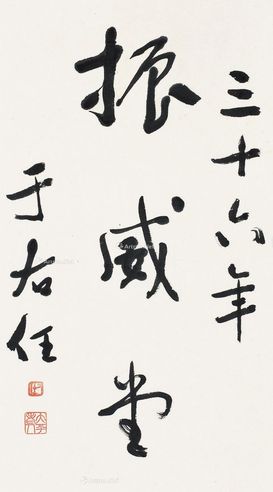 三十六年
振威堂
于右任